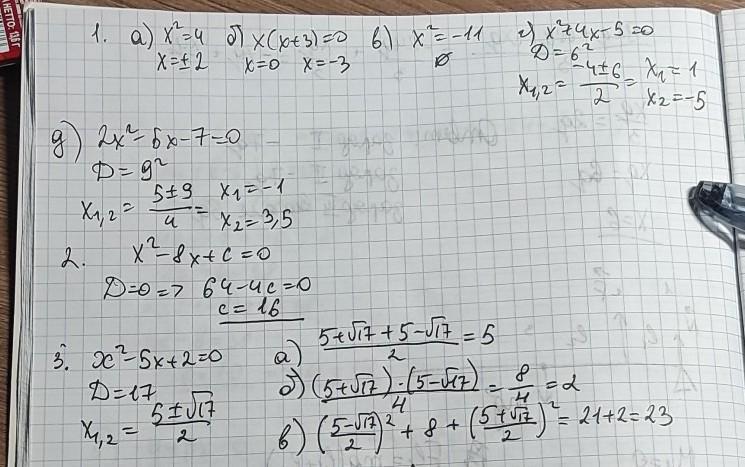 1. а) x²=4 б) x(x+3)=0 в) x²=-11 г) x²+4x-5=0
x=±2 x=0 x=-3 ∅ D=6²
x₁,₂= (-4±6)/2 = x₁=1
x₂=-5
д) 2x²-5x-7=0
D=9²
x₁,₂= (5±9)/4 = x₁=-1
x₂=3,5
2. x²-8x+c=0
D=0=> 64-4c=0
c=16
3. x²-5x+2=0 а) (5+√17+5-√17)/2 =5
D=17 б) ((5+√17)·(5-√17))/4 = 8/4 =2
x₁,₂= (5±√17)/2 в) ((5-√17)/2)² + 8 + ((5+√17)/2)² = 21+2=23